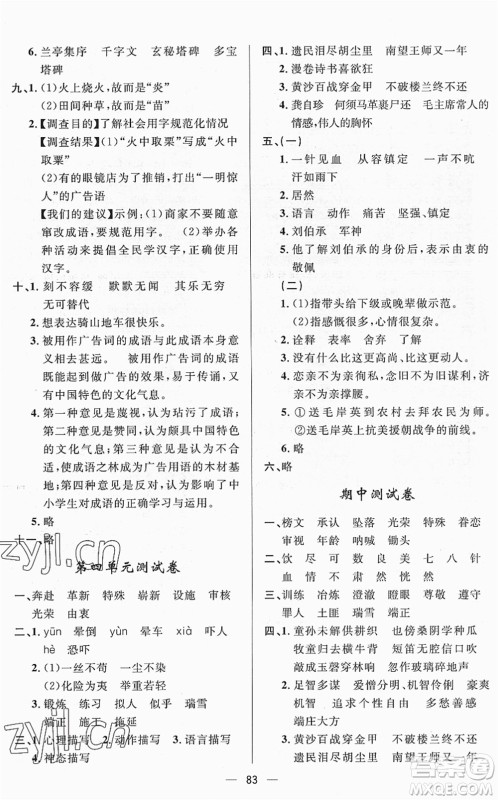 6. 兰亭集序 千字文 玄秘塔碑 多宝
塔碑
九、1. (1)火上烧火，故而是“炎”
(2)田间种草，故而是“苗”
2.【调查目的】了解社会用字规范化情况
【调查结果】(1)“火中取栗”写成“火中
取粟”
(2)有的眼镜店为了推销，打出了“一明惊
人”的广告语
【我们的建议】示例：(1)商家不要随意
窜改成语，要规范用字。(2)举办各
种活动，来提倡全民学汉字，正确使
用汉字。
十、1. 刻不容缓 默默无闻 其乐无穷
无可替代
2. 想表达骑山地车很快乐。
3. 被用作广告词的成语与此成语本来意义
相去甚远。 被用作广告词的成语
既能起到广告宣传的效果，又富
有中国特色的文化气息。
4. 第一种意见是蔑视，认为玷污了成语；
第二种意见是赞同，认为具有中国特色
的文化气息；第三种意见是反对，认为
成语之林成为广告用语的木材基
地；第四种意见是认为广告用语影响中
小学生对成语的正确学习与运用。
5. 略
十一、略
第四单元测试卷
一、奔赴 革新 特殊 崭新 设施 审核
光荣 由衷
二、1. yūn 晕倒 yùn 晕车 xià 吓人
hè 恐吓
2. (1)一丝不苟 一尘不染
(2)化险为夷 多多益善
3. 锻炼 练习 拟人 似乎 瑞雪
端正 施工 拖延
三、1. 心理描写 2. 动作描写 3. 语言描写
4. 神态描写
四、1. 遗民泪尽胡尘里 南望王师又一年
2. 漫卷诗书喜欲狂
3. 黄沙百战穿金甲 不破楼兰终不还
4. 龚自珍 何须马革裹尸还 毛主席常人的
情感，伟人的胸怀
五、(一)
1. 一针见血 从容镇定 一声不吭
汗如雨下
2. 居然
3. 语言 动作 痛苦 坚强、镇定
4. 刘伯承 军神
5. 他了解刘伯承的身份后，表示由衷的
敬佩
(二)
1. (1)指带头给下级或晚辈做示范。
(2)指感慨很多，心情很复杂。
2. 诠释 舍弃 了解
3. 没有什么比这更高尚，更伟大。
4. 恋亲不为亲徇私 念旧不为旧谋利，
济亲不为亲撑腰
5. ①送毛岸英到农村去拜农民为师。
②送毛岸英上抗美援朝战争的前线。
6. 略
六、略
期中测试卷
一、榜文 承认 坠落 光荣 特殊 眷恋
审视 年龄 呐喊 锄头
二、饮 尽 可 数 良 美 八 十 一
血 情 若 然 肃 然 赫 然
三、训练 冶炼 遣送 谴责 庄严 尊守
罪人 郎才 土崖 瑞雪 端正
四、1. 童孙未解供耕织 也傍桑阴学种瓜
牧童归去横牛背 短笛无腔信口吹
敲成玉磬穿林响 忽作玻璃碎地声
2. 足智多谋 爱憎分明、机智伶俐 豪爽
机智 追求个性自由 多愁善感
端庄大方
3. 黄沙百战穿金甲 不破楼兰终不还
遗民泪尽胡尘里 南望王师又一年
83